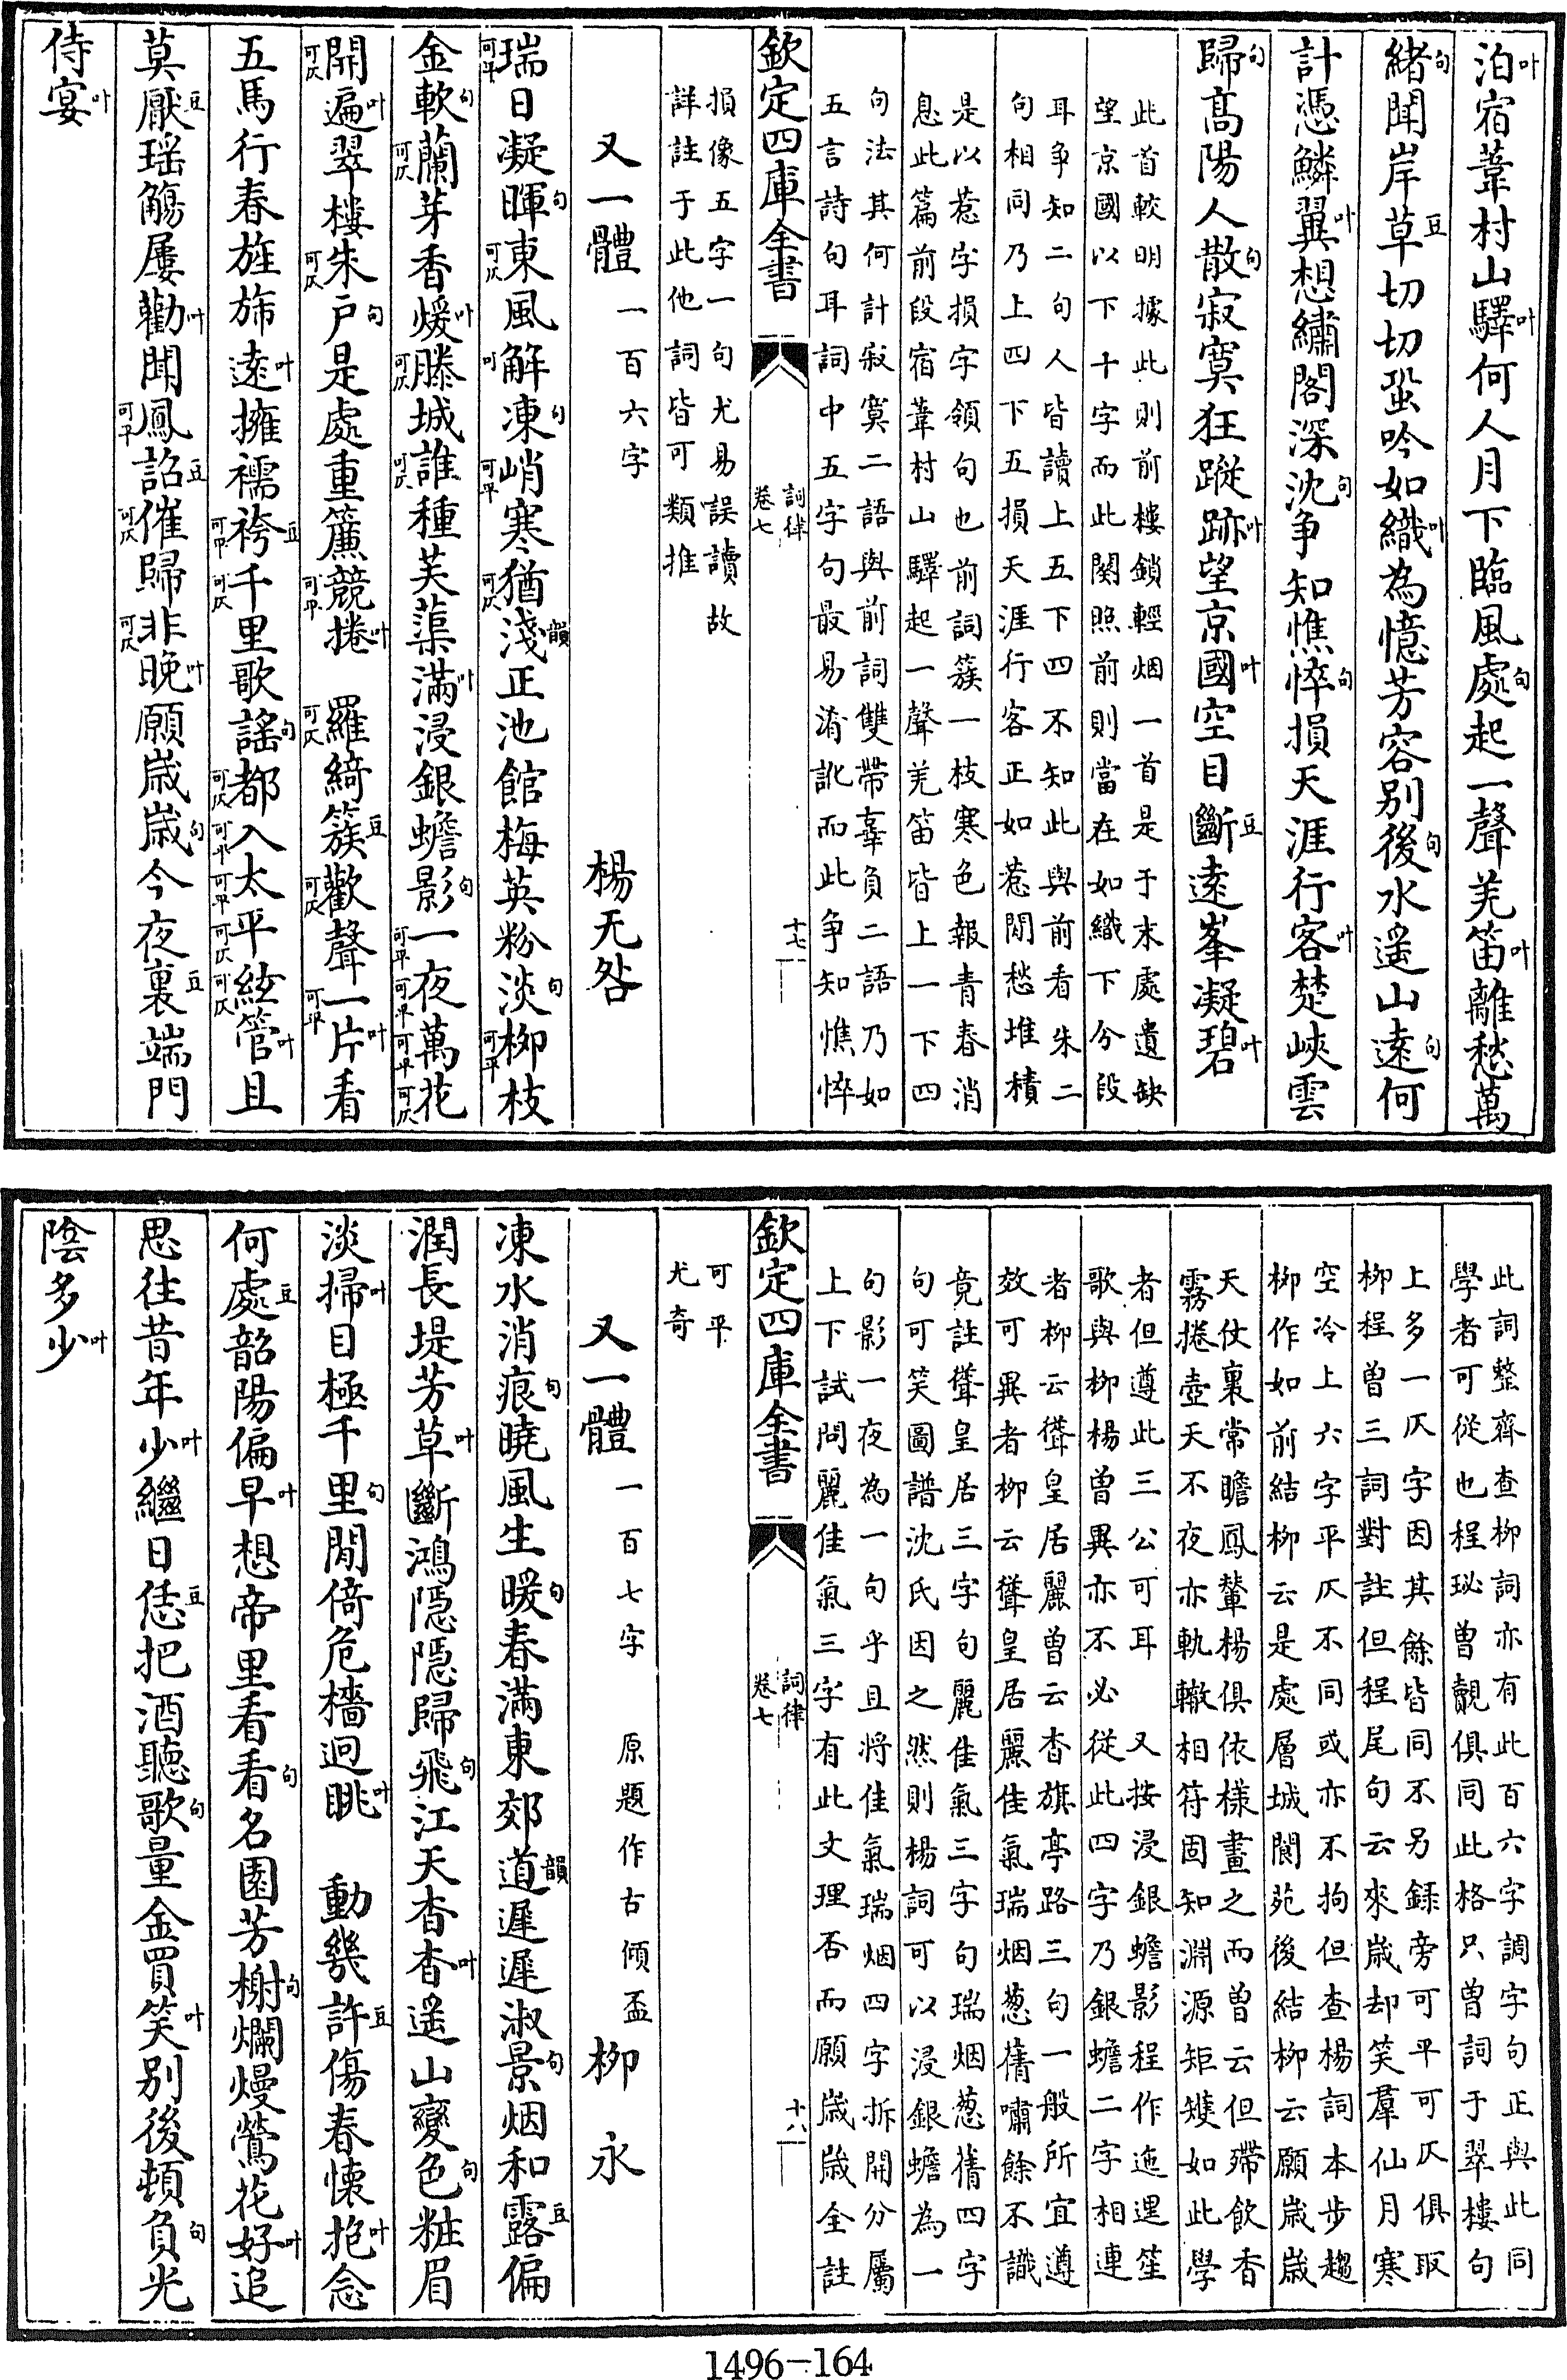 泊叶宿葦村山驛叶何人月下臨風處句起一聲羌笛叶離愁萬
緒句聞岸草豆切切蛩吟如織叶為憶芳容别後句水遥山遠句何
計憑鱗翼叶想繡閣深沈句争知憔悴句損天涯行客叶楚峽雲
歸句髙陽人散句寂寞狂蹤跡叶望京國叶空目斷豆遠峯凝碧叶
此首較明據此則前樓鎖輕烟一首是于末處遺缺
望京國以下十字而此闋照前則當在如織下分段
耳争知二句人皆讀上五下四不知此與前看朱二
句相同乃上四下五損天涯行客正如惹閒愁堆積
是以惹字損字領句也前詞簇一枝寒色報青春消
息此篇前段宿葦村山驛起一聲羌笛皆上一下四
句法其何計寂寞二語與前詞雙帶辜負二語乃如
五言詩句耳詞中五字句最易淆訛而此争知憔悴
欽定四庫全書 詞律 卷七 十七
損像五字一句尤易誤讀故
詳註于此他詞皆可類推
又一體 一百六字 楊无咎
瑞可平日凝暉句東可仄風解叶凍句峭可平寒猶可仄淺韻正池館梅英粉淡句柳可平枝
金軟句蘭可仄芽香煖叶滕可仄城誰可仄種芙蕖滿叶浸銀蟾影句一可平夜可平萬可平花可仄
開可仄遍叶翠樓朱可仄戶句是處重簾競可平捲叶 羅可仄綺簇豆歡可仄聲一可平片叶看
五馬行春旌斾遠叶擁襦袴可平豆千可仄里歌謡句都可仄入可平太可平平可仄絃可仄管叶且
莫厭豆瑶觴屢勸叶聞鳳可平詔豆催可仄歸非可仄晚叶願歲歲句今夜裏豆端門
侍宴叶
此詞整齊查柳詞亦有此百六字調字句正與此同
學者可從也程珌曽覿俱同此格只曽詞于翠樓句
上多一仄字因其餘皆同不另録旁可平可仄俱取
柳程曽三詞對註但程尾句云來歲却笑羣仙月寒
空冷上六字平仄不同或亦不拘但查楊詞本步趨
柳作如前結柳云是處層城閬苑後結柳云願歲歲
天仗裏常瞻鳳輦楊俱依様畫之而曽云但殢飲香
霧捲壺天不夜亦軌轍相符固知淵源矩矱如此學
者但遵此三公可耳 又按浸銀蟾影程作迤邐笙
歌與柳楊曽異亦不必從此四字乃銀蟾二字相連
者柳云聳皇居麗曽云杳旗亭路三句一般所宜遵
效可異者柳云聳皇居麗佳氣瑞烟葱蒨嘯餘不識
竟註聳皇居三字句麗佳氣三字句瑞烟葱蒨四字
句可笑圖譜沈氏因之然則楊詞可以浸銀蟾為一
句影一夜為一句乎且將佳氣瑞烟四字拆開分屬
上下試問麗佳氣三字有此文理否而願歲歲全註
欽定四庫全書 詞律 卷七 十八
可平
尤奇
又一體 一百七字 原題作古傾盃 柳永
凍水消痕句曉風生暖句春滿東郊道韻遲遲淑景句烟和露豆偏
潤長堤芳草叶斷鴻隱隱歸飛句江天杳杳叶遥山變色句粧眉
淡掃叶目極千里句閒倚危檣迥眺叶 動幾許豆傷春懷抱叶念
何處豆韶陽偏早叶想帝里看看句名園芳榭句爛熳鶯花好叶追
思往昔年少叶繼日恁豆把酒聽歌句量金買笑叶别後頓負句光
陰多少叶
1496-164